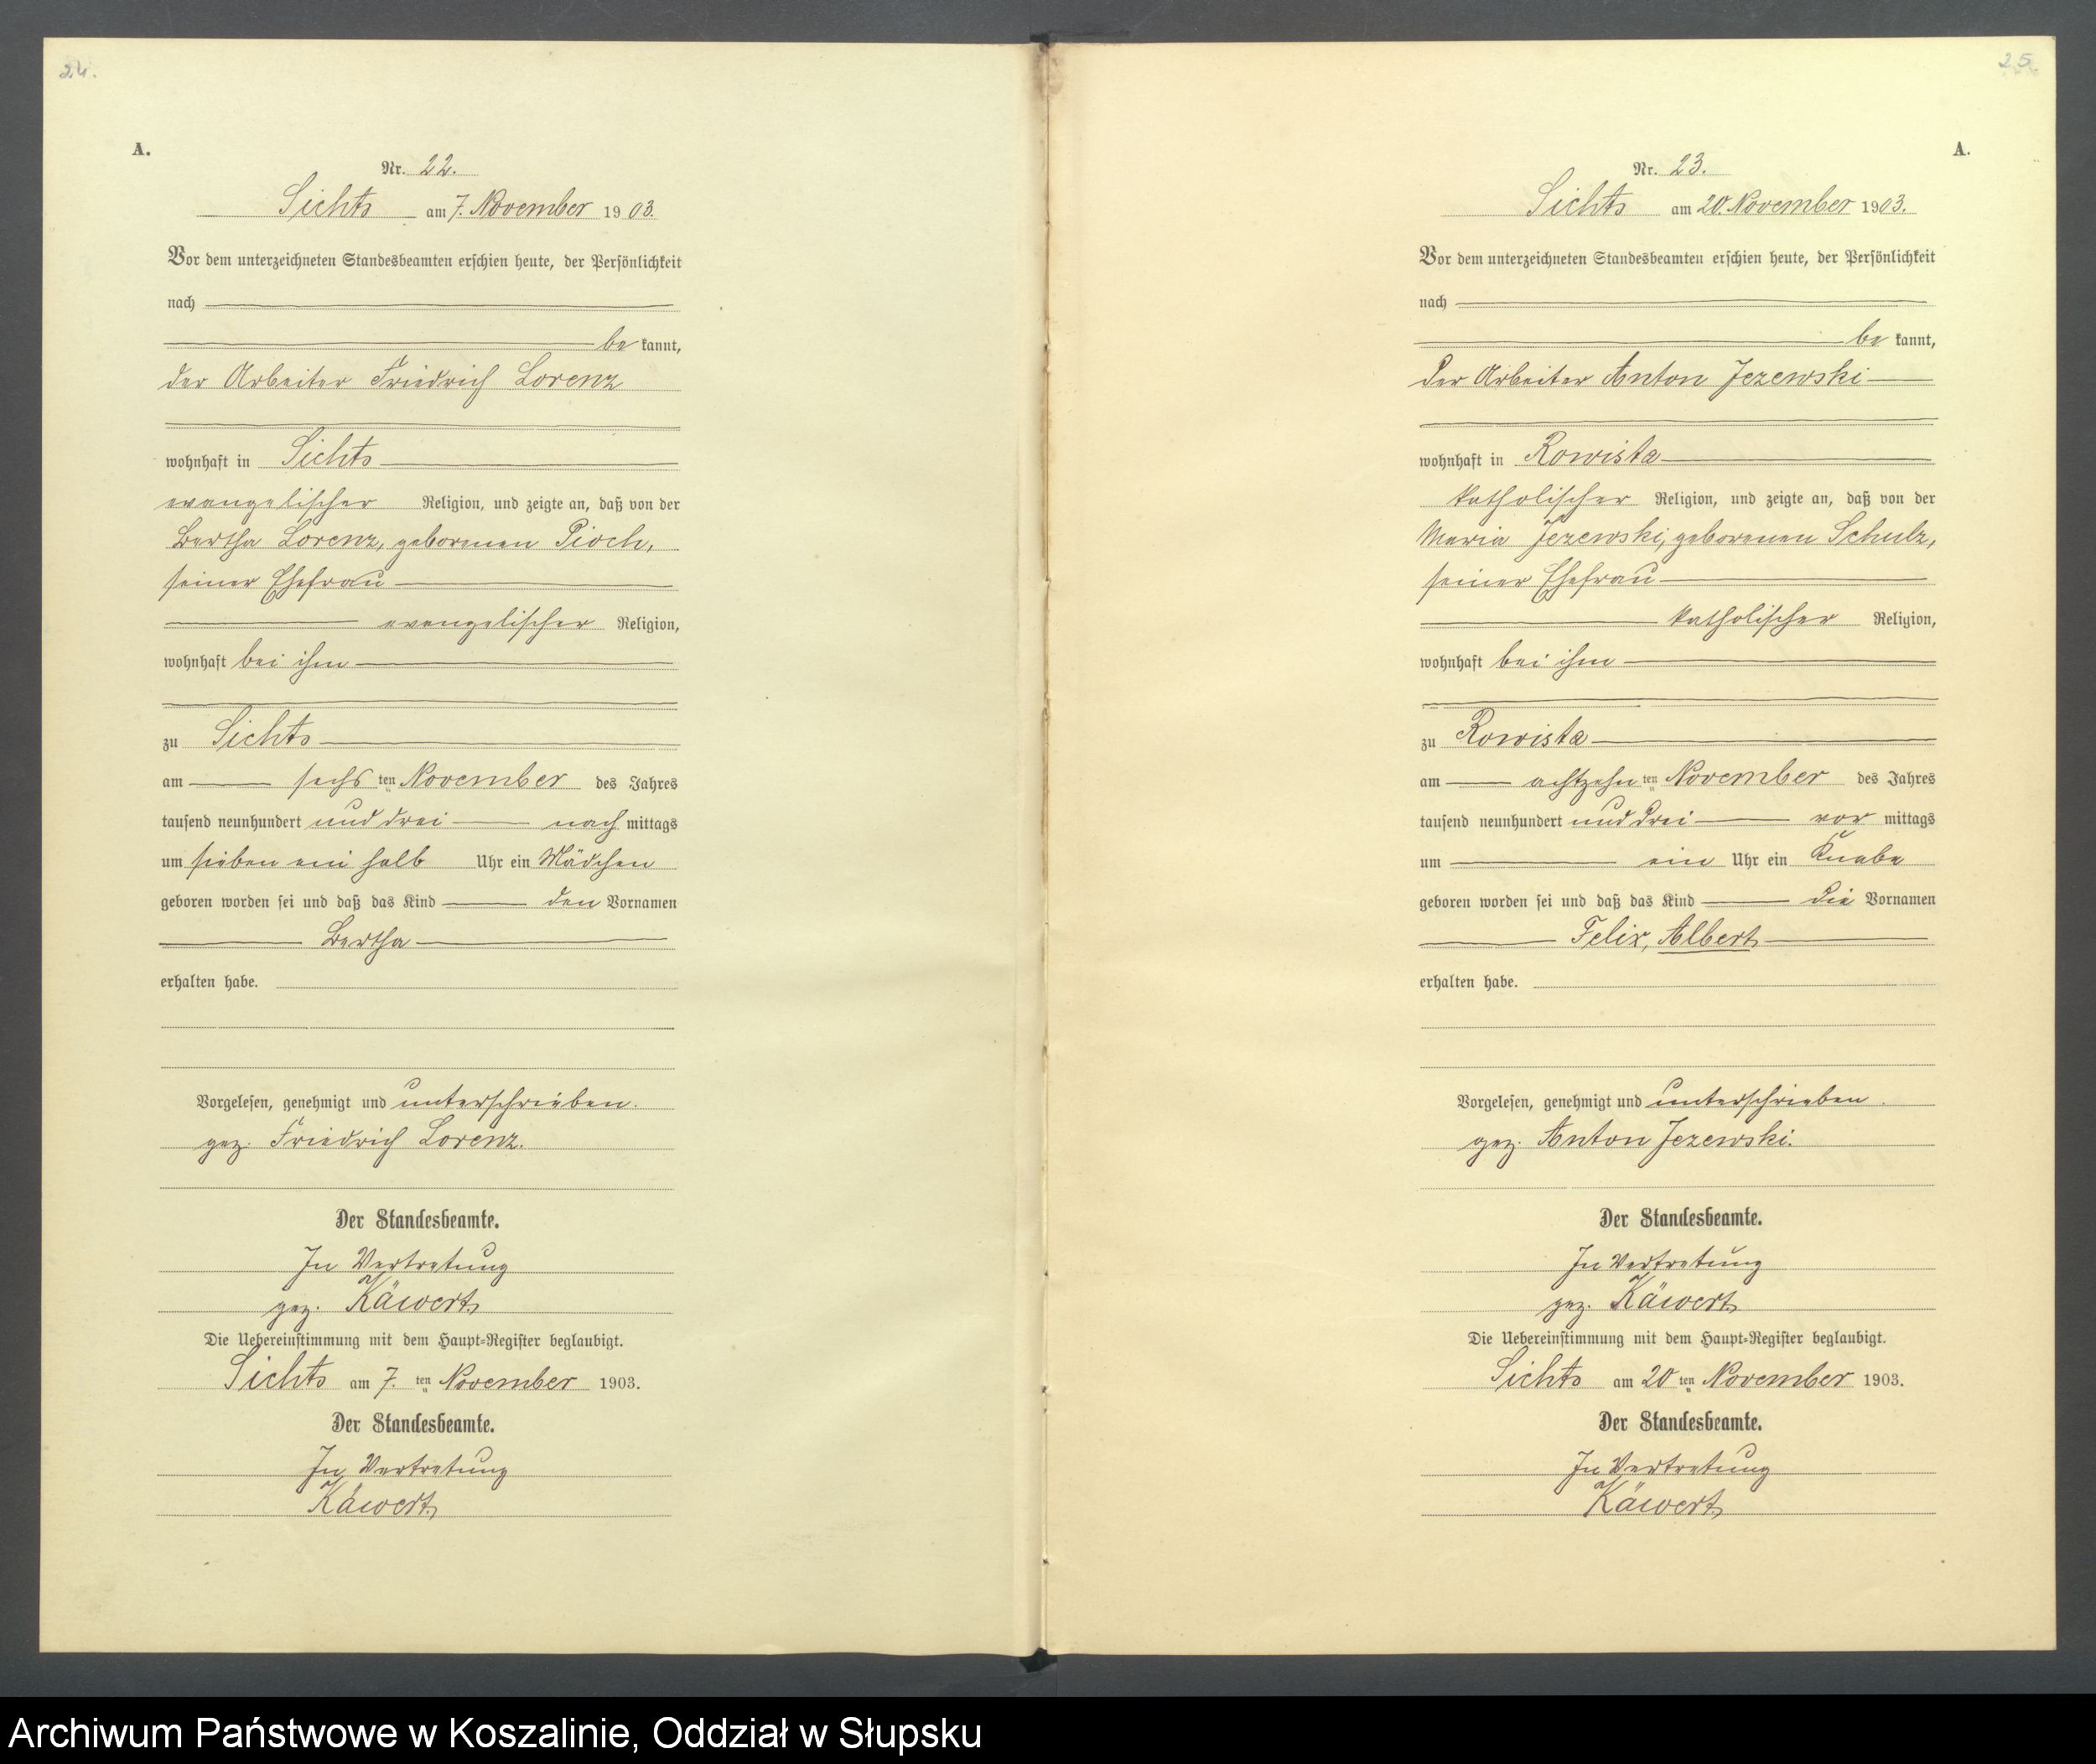 24.
A.
Nr. 22.
Sichts am 7. November 1903.
Vor dem unterzeichneten Standesbeamten erschien heute, der Persönlichkeit
nach
be kannt,
der Arbeiter Friedrich Lorenz
wohnhaft in Sichts
evangelischer Religion, und zeigte an, daß von der
Bertha Lorenz, geborenen Pioch,
seiner Ehefrau
evangelischer Religion,
wohnhaft bei ihm
zu Sichts
am sechs ten November des Jahres
tausend neunhundert und drei nach mittags
um sieben ein halb Uhr ein Mädchen
geboren worden sei und daß das Kind den Vornamen
Bertha
erhalten habe.
Vorgelesen, genehmigt und unterschrieben.
gez. Friedrich Lorenz.
Der Standesbeamte.
In Vertretung
gez. Käwert
Die Uebereinstimmung mit dem Haupt-Register beglaubigt.
Sichts am 7. ten November 1903.
Der Standesbeamte.
In Vertretung
Käwert
25
A.
Nr. 23.
Sichts am 20. November 1903.
Vor dem unterzeichneten Standesbeamten erschien heute, der Persönlichkeit
nach
be kannt,
der Arbeiter Anton Jezewski
wohnhaft in Rowista
katholischer Religion, und zeigte an, daß von der
Maria Jezewski, geborenen Schulz,
seiner Ehefrau
katholischer Religion,
wohnhaft bei ihm
zu Rowista
am achtzehn ten November des Jahres
tausend neunhundert und drei vor mittags
um ein Uhr ein Knabe
geboren worden sei und daß das Kind die Vornamen
Felix, Albert
erhalten habe.
Vorgelesen, genehmigt und unterschrieben.
gez. Anton Jezewski.
Der Standesbeamte.
In Vertretung
gez. Käwert
Die Uebereinstimmung mit dem Haupt-Register beglaubigt.
Sichts am 20 ten November 1903.
Der Standesbeamte.
In Vertretung
Käwert
Archiwum Państwowe w Koszalinie, Oddział w Słupsku